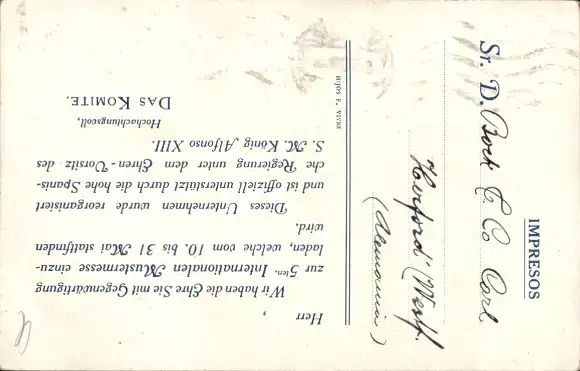 Herr ,
Wir haben die Ehre Sie mit Gegenwärtigung
zur 5ten. Internationalen Mustermesse einzu-
laden, welche vom 10. bis 31 Mai stattfinden
wird.
Dieses Unternehmen wurde reorganisiert
und ist offiziell unterstützt durch die hohe Spanis-
che Regierung unter dem Ehren-Vorsitz des
S. M. König Alfonso XIII.
Hochachtungsvoll,
DAS KOMITE.
HIJOS F. VIVES
IMPRESOS
Sr. D. Bock & Co Carl
Herford (Westf.
(Alemania)